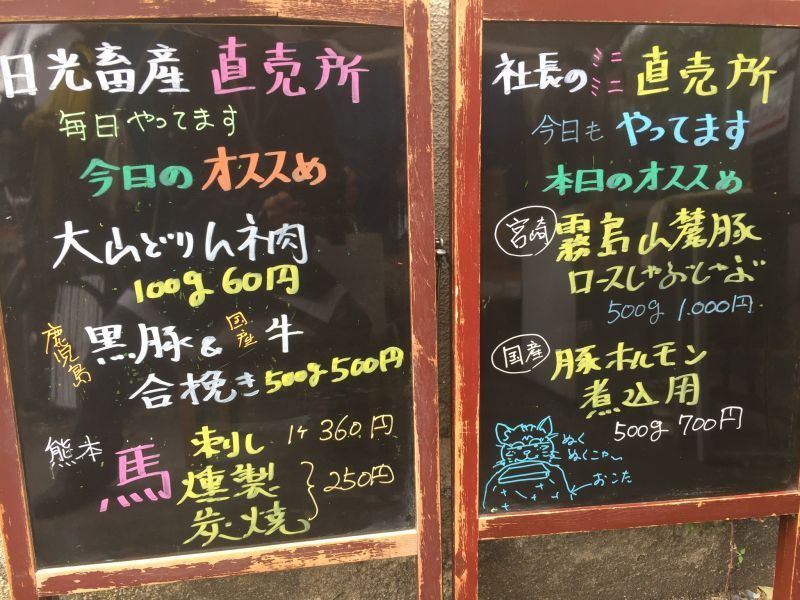 日光畜産 直売所
毎日やってます
今日のオススメ
大山どりハネ肉
100g 60円
鹿児島 黒豚 & 国産 牛
合挽き 500g 500円
熊本 馬 刺し 1ケ 360円
燻製
炭焼
250円
社長の ミニ ミニ 直売所
今日も やってます
本日のオススメ
宮崎 霧島山麓豚
ロースしゃぶしゃぶ
500g 1.000円
国産 豚ホルモン
煮込用
500g 700円
ぬく
ぬくにゃ〜
おこた